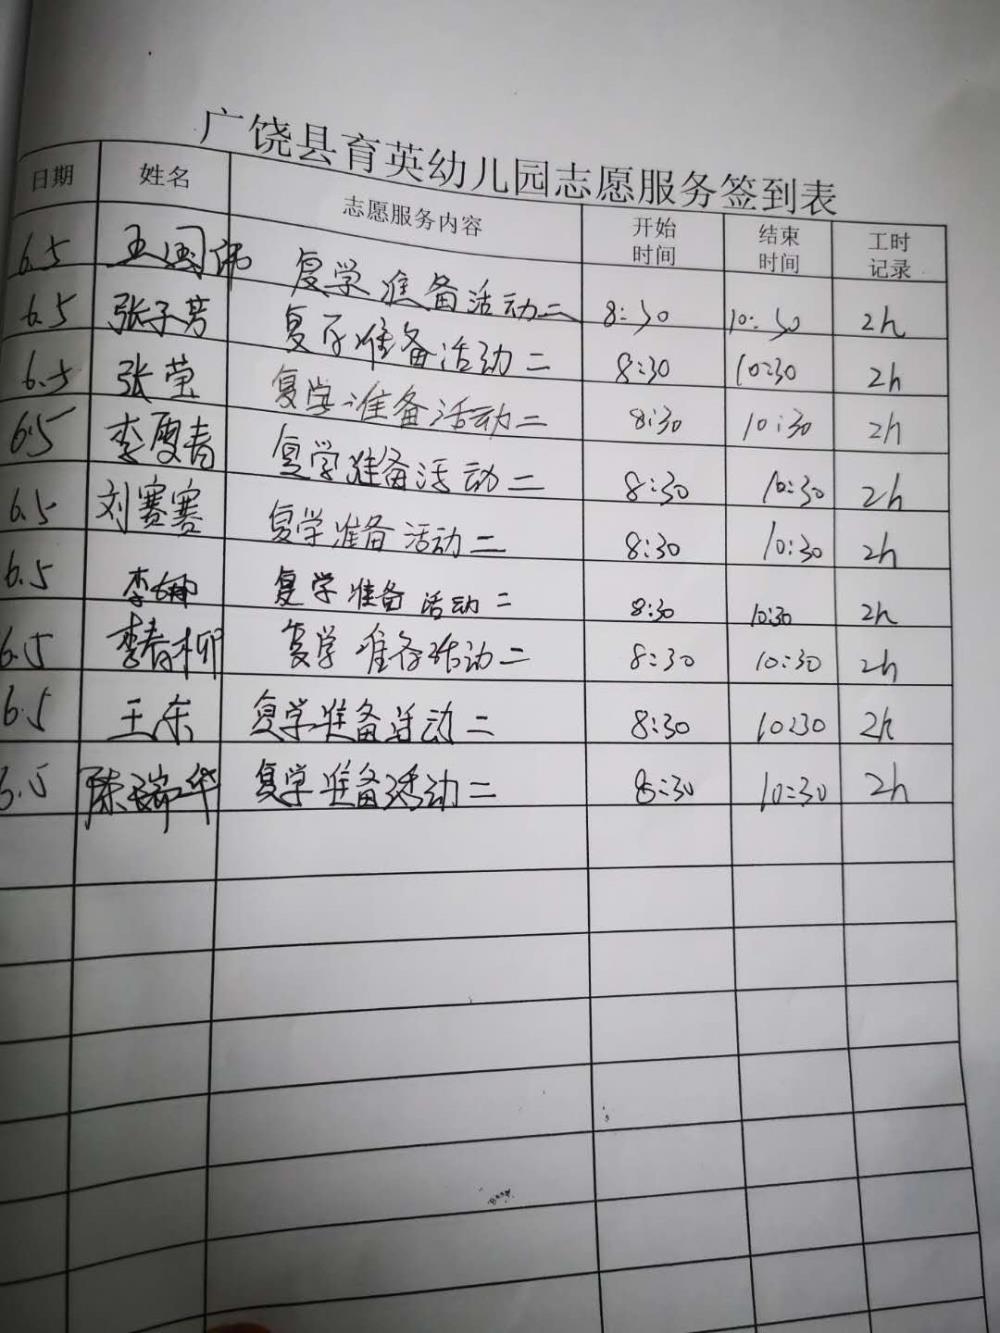 广饶县育英幼儿园志愿服务签到表
日期 姓名 志愿服务内容 开始时间 结束时间 工时记录
6.5 王国伟 复学准备活动二 8:30 10:30 2h
6.5 张子芳 复学准备活动二 8:30 10:30 2h
6.5 张莹 复学准备活动二 8:30 10:30 2h
6.5 李夏青 复学准备活动二 8:30 10:30 2h
6.5 刘赛赛 复学准备活动二 8:30 10:30 2h
6.5 李 复学准备活动二 8:30 10:30 2h
6.5 李春柳 复学准备活动二 8:30 10:30 2h
6.5 王东 复学准备活动二 8:30 10:30 2h
6.5 陈瑞华 复学准备活动二 8:30 10:30 2h